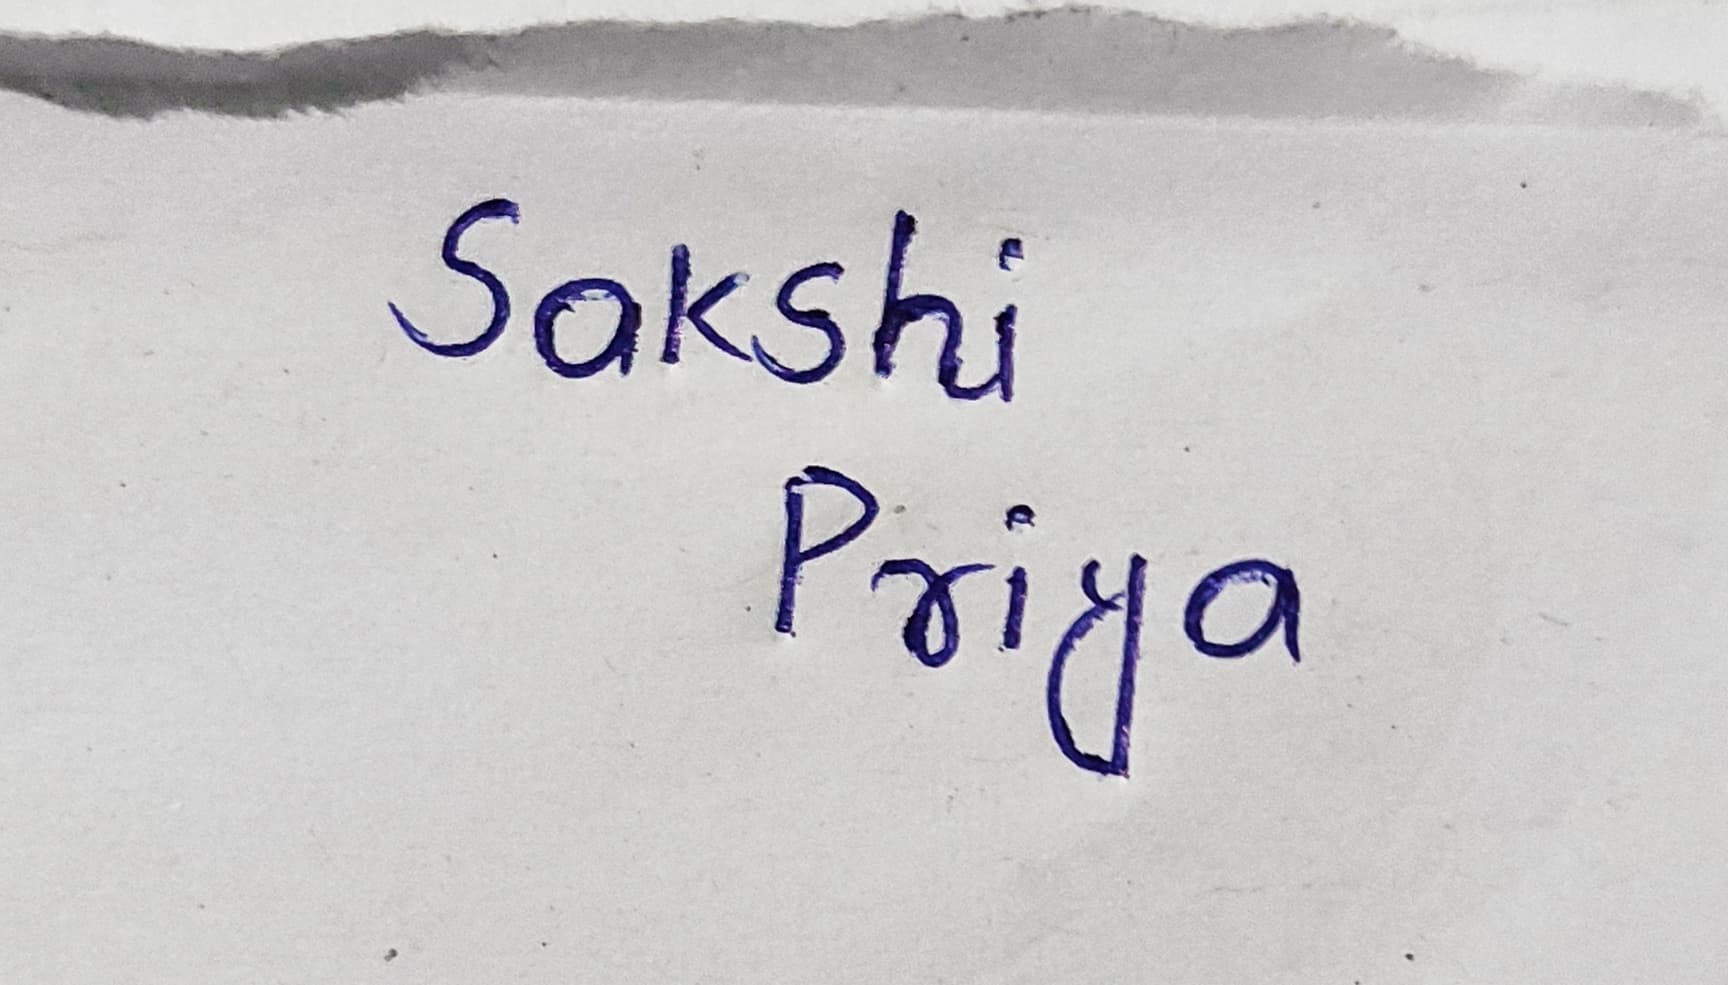 Sakshi
Priya